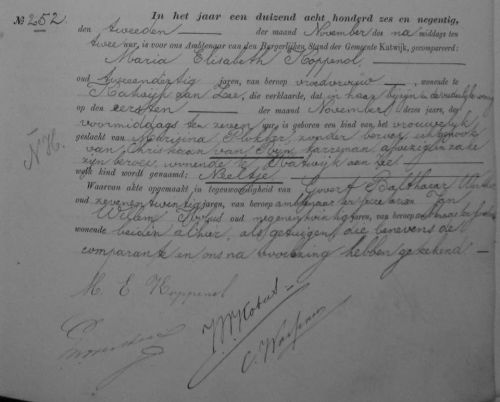 No 252. In het jaar een duizend acht honderd zes en negentig,
den tweeden der maand November des na middags ten
twee ure, is voor ons Ambtenaar van den Burgerlijken Stand der Gemeente Katwijk, gecompareerd:
Maria Elisabeth Koppenol
oud tweeendertig jaren, van beroep vroedvrouw, wonende te
Katwijk aan Zee, die verklaarde, dat in haar bijzijn
op den eersten der maand November dezes jaars, des
voormiddags ten zeven ure, is geboren een kind van het vrouwelijk
geslacht van zonder beroep, echtgenoote
van Christiaan van Rijn, afwezig in zake
zijn beroep, wonende te Katwijk aan Zee
welk kind wordt genaamd: Neeltje
Waarvan akte opgemaakt in tegenwoordigheid van Govert Balthazar
oud zevenentwintig jaren, van beroep ambtenaar ter secretarie en Jan
Willem oud negenenveertig jaren, van beroep
wonende beiden alhier, als getuigen, die benevens de
comparante en ons na voorlezing hebben geteekend
M E Koppenol